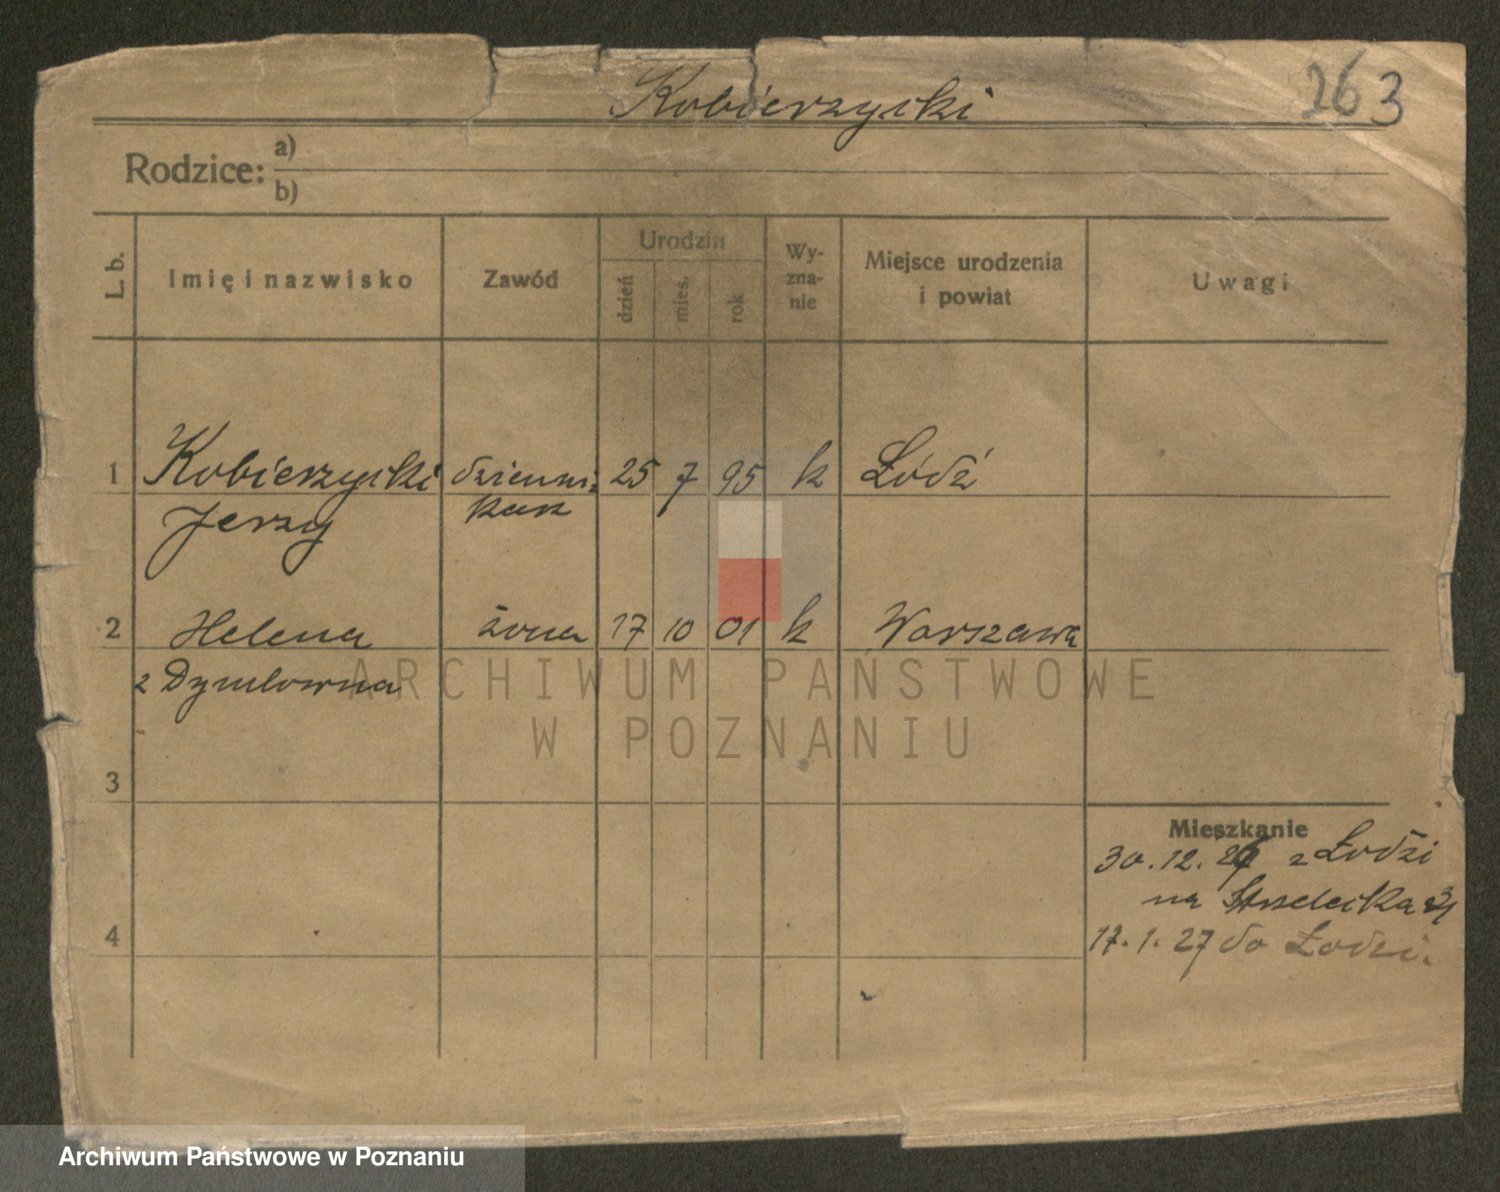 Kobierzycki
263
Rodzice: a)
b)
L. b.
Imię i nazwisko
Zawód
Urodzin
dzień
mies.
rok
Wy-
zna-
nie
Miejsce urodzenia
i powiat
Uwagi
1 Kobierzycki dzienni- 25 7 95 k Łódź
Jerzy karz
2 Helena żona 17 10 01 k Warszawa
z Dymlowna
3
4
Mieszkanie
30.12.26 z Łodzi
na Strzelecka
17.1.27 do Łodzi.
ARCHIWUM PAŃSTWOWE
W POZNANIU
Archiwum Państwowe w Poznaniu